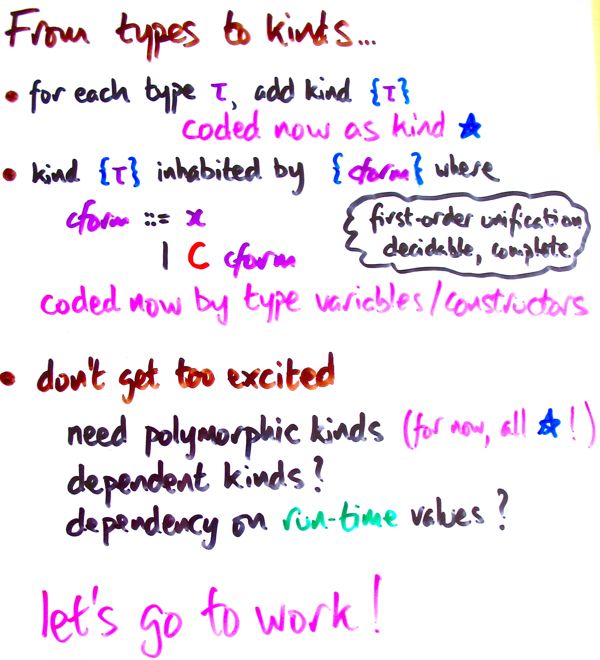 From types to kinds...
• for each type τ, add kind {τ}
coded now as kind ★
• kind {τ} inhabited by {cform} where
cform ::= x
| C cform
first-order unification
decidable, complete
coded now by type variables/constructors
• don't get too excited
need polymorphic kinds (for now, all ★!)
dependent kinds?
dependency on run-time values?
let's go to work!